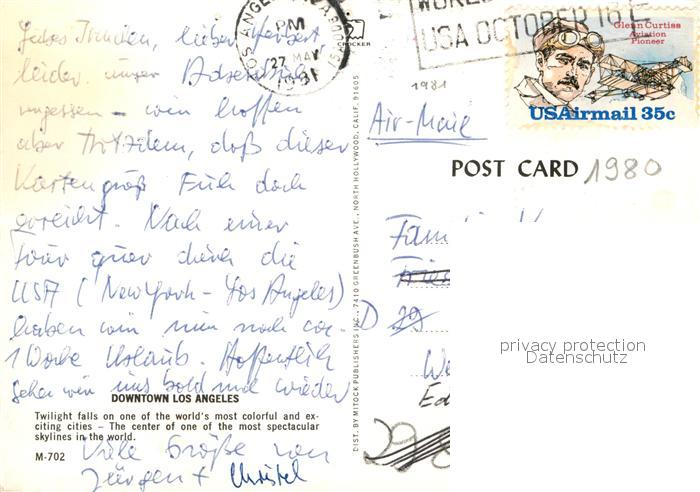 Liebes Trudchen, lieber Herbert,
leider unser Adressbuch
vergessen – wir hoffen
aber trotzdem, daß dieser
Kartengruß Euch doch
erreicht. Nach einer
Tour quer durch die
USA (New York – Los Angeles)
haben wir nun noch ca.
1 Woche Urlaub. Hoffentlich
sehen wir uns bald mal wieder
DOWNTOWN LOS ANGELES
Twilight falls on one of the world's most colorful and ex-
citing cities – The center of one of the most spectacular
skylines in the world.
M-702
Viele Grüße von
Jürgen + Christel
CROCKER
DIST. BY MITOCK PUBLISHERS INC., 7410 GREENBUSH AVE., NORTH HOLLYWOOD, CALIF. 91605
LOS ANGELES, CA
PM
27 MAY
1981
USA OCTOBER
1981
Glenn Curtiss
Aviation
Pioneer
USAirmail 35c
Air-Mail
POST CARD
1980
Fam
D
29
We
Ed
privacy protection
Datenschutz